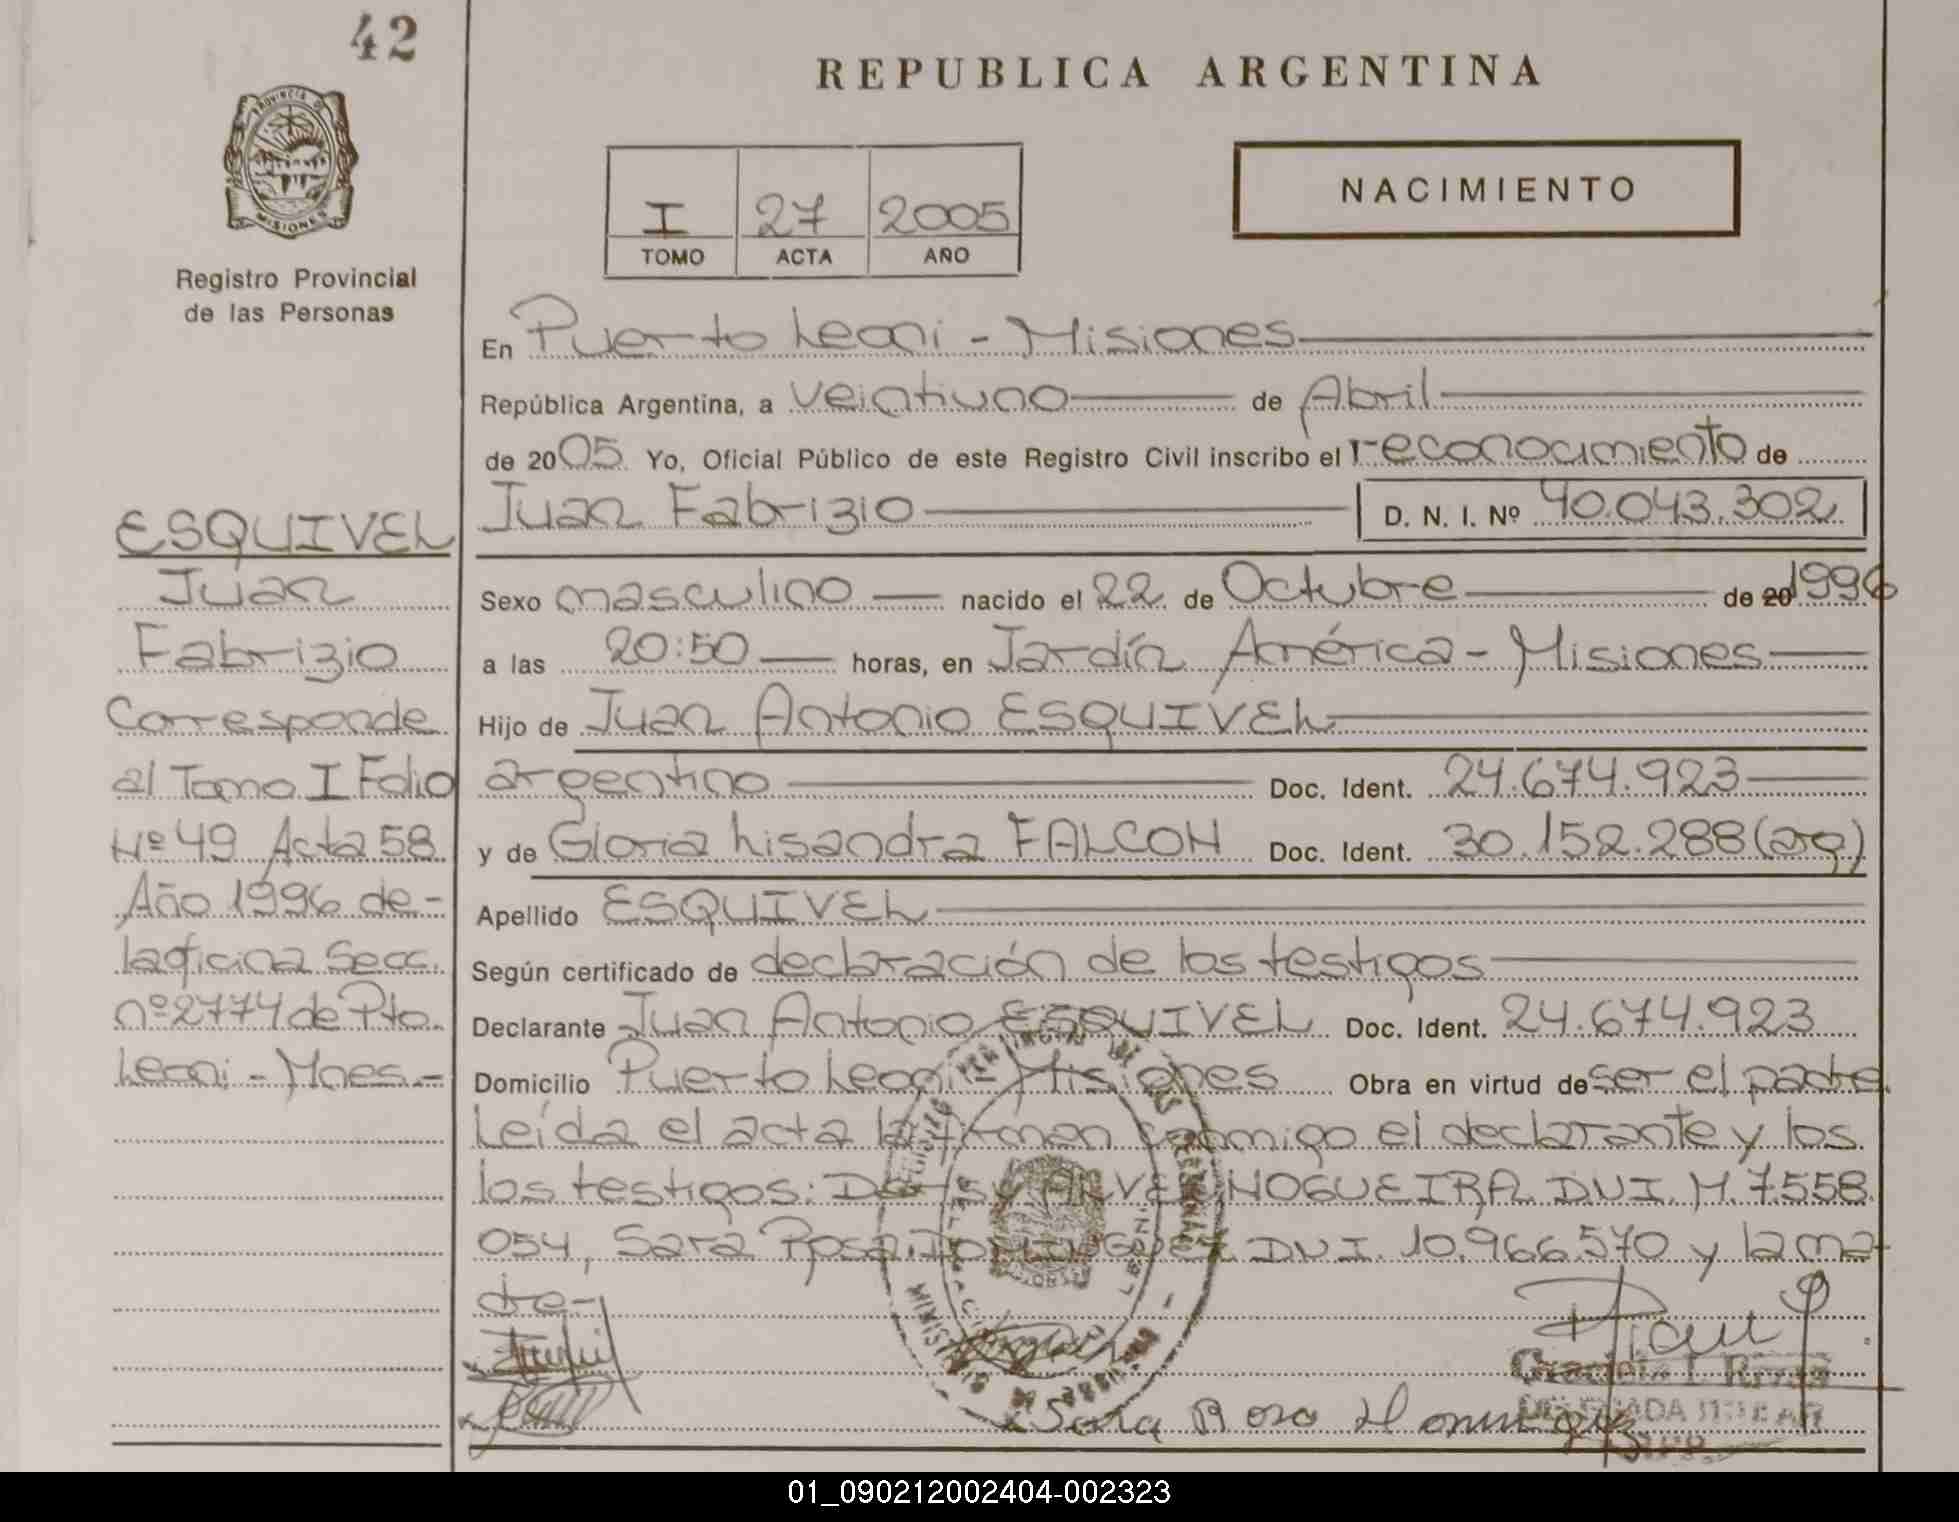 42
REPUBLICA ARGENTINA
PROVINCIA DE
MISIONES
Registro Provincial
de las Personas
I 27 2005
TOMO ACTA AÑO
NACIMIENTO
En Puerto Leoni - Misiones
República Argentina, a veintiuno de Abril
de 2005 Yo, Oficial Público de este Registro Civil inscribo el reconocimiento de
Juan Fabrizio D. N. I. Nº 40.043.302
Sexo masculino nacido el 22 de Octubre de 20 1996
a las 20:50 horas, en Jardín América - Misiones
Hijo de Juan Antonio ESQUIVEL
argentino Doc. Ident. 24.674.923
y de Gloria Lisandra FALCON Doc. Ident. 30.152.288 (arg)
Apellido ESQUIVEL
Según certificado de declaración de los testigos
Declarante Juan Antonio ESQUIVEL Doc. Ident. 24.674.923
Domicilio Puerto Leoni - Misiones Obra en virtud de ser el padre
Leída el acta la firman conmigo el declarante y los
los testigos: NOGUEIRA D.N.I. M. 7.558.
054, Sara Rosa DOMINGUEZ D.N.I. 10.966.570 y la ma-
dre-
ESQUIVEL
Juan
Fabrizio
Corresponde
al Tomo I Folio
Nº 49 Acta 58
Año 1996 de-
la oficina Secc.
nº 2774 de Pto.
Leoni - Mnes.-
Sara Rosa Dominguez
Graciela I. Rivas
DELEGADA TITULAR
01_090212002404-002323